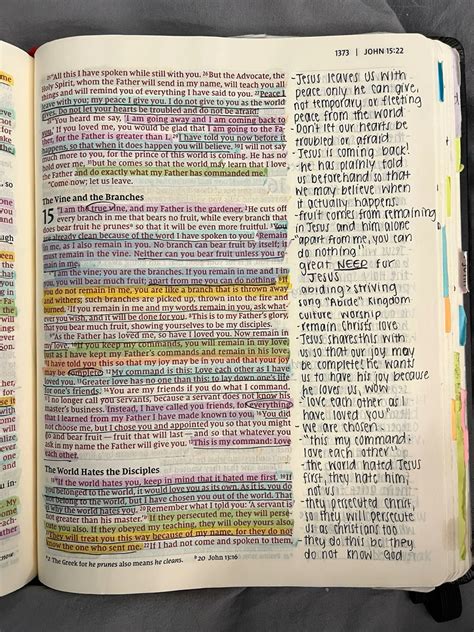 1373 | JOHN 15:22
25“All this I have spoken while still with you. 26But the Advocate, the
Holy Spirit, whom the Father will send in my name, will teach you all
things and will remind you of everything I have said to you. 27Peace I
leave with you; my peace I give you. I do not give to you as the world
gives. Do not let your hearts be troubled and do not be afraid.
28“You heard me say, ‘I am going away and I am coming back to
you.’ If you loved me, you would be glad that I am going to the Fa-
ther, for the Father is greater than I. 29I have told you now before it
happens, so that when it does happen you will believe. 30I will not say
much more to you, for the prince of this world is coming. He has no
hold over me, 31but he comes so that the world may learn that I love
the Father and do exactly what my Father has commanded me.
“Come now; let us leave.
The Vine and the Branches
15 “I am the true vine, and my Father is the gardener. 2He cuts off
every branch in me that bears no fruit, while every branch that
does bear fruit he prunesa so that it will be even more fruitful. 3You
are already clean because of the word I have spoken to you. 4Remain
in me, as I also remain in you. No branch can bear fruit by itself; it
must remain in the vine. Neither can you bear fruit unless you re-
main in me.
5“I am the vine; you are the branches. If you remain in me and I in
you, you will bear much fruit; apart from me you can do nothing. 6If
you do not remain in me, you are like a branch that is thrown away
and withers; such branches are picked up, thrown into the fire and
burned. 7If you remain in me and my words remain in you, ask what-
ever you wish, and it will be done for you. 8This is to my Father’s glory,
that you bear much fruit, showing yourselves to be my disciples.
9“As the Father has loved me, so have I loved you. Now remain in
my love. 10If you keep my commands, you will remain in my love,
just as I have kept my Father’s commands and remain in his love.
11I have told you this so that my joy may be in you and that your joy
may be complete. 12My command is this: Love each other as I have
loved you. 13Greater love has no one than this: to lay down one’s life
for one’s friends. 14You are my friends if you do what I command.
15I no longer call you servants, because a servant does not know his
master’s business. Instead, I have called you friends, for everything
that I learned from my Father I have made known to you. 16You did
not choose me, but I chose you and appointed you so that you might
go and bear fruit — fruit that will last — and so that whatever you
ask in my name the Father will give you. 17This is my command: Love
each other.
The World Hates the Disciples
18“If the world hates you, keep in mind that it hated me first. 19If
you belonged to the world, it would love you as its own. As it is, you do
not belong to the world, but I have chosen you out of the world. That
is why the world hates you. 20Remember what I told you: ‘A servant is
not greater than his master.’b If they persecuted me, they will perse-
cute you also. If they obeyed my teaching, they will obey yours also.
21They will treat you this way because of my name, for they do not
know the one who sent me. 22If I had not come and spoken to them,
a 2 The Greek for he prunes also means he cleans. b 20 John 13:16
-Jesus leaves us with
peace only he can give,
not temporary or fleeting
peace from the world
-Don't let our hearts be
troubled or afraid
-Jesus is coming back!
-he has plainly told
us beforehand so that
we may believe when
it actually happens
-fruit comes from remaining
in Jesus and him alone
"apart from me, you can
do nothing"
great NEED for
Jesus
abiding > striving
song "Abide" Kingdom
culture worship
-remain Christs love
-Jesus shares this with
us so that our joy may
be complete! he wants
us to have his joy because
he loves us, wow
-"love each other as I
have loved you"
-we are chosen
-"this my command:
love each other"
-the world hated Jesus
first, they hate him,
not us
-they persecuted Christ,
so they will persecute
us as Christians too
-they do this bc they
do not know God